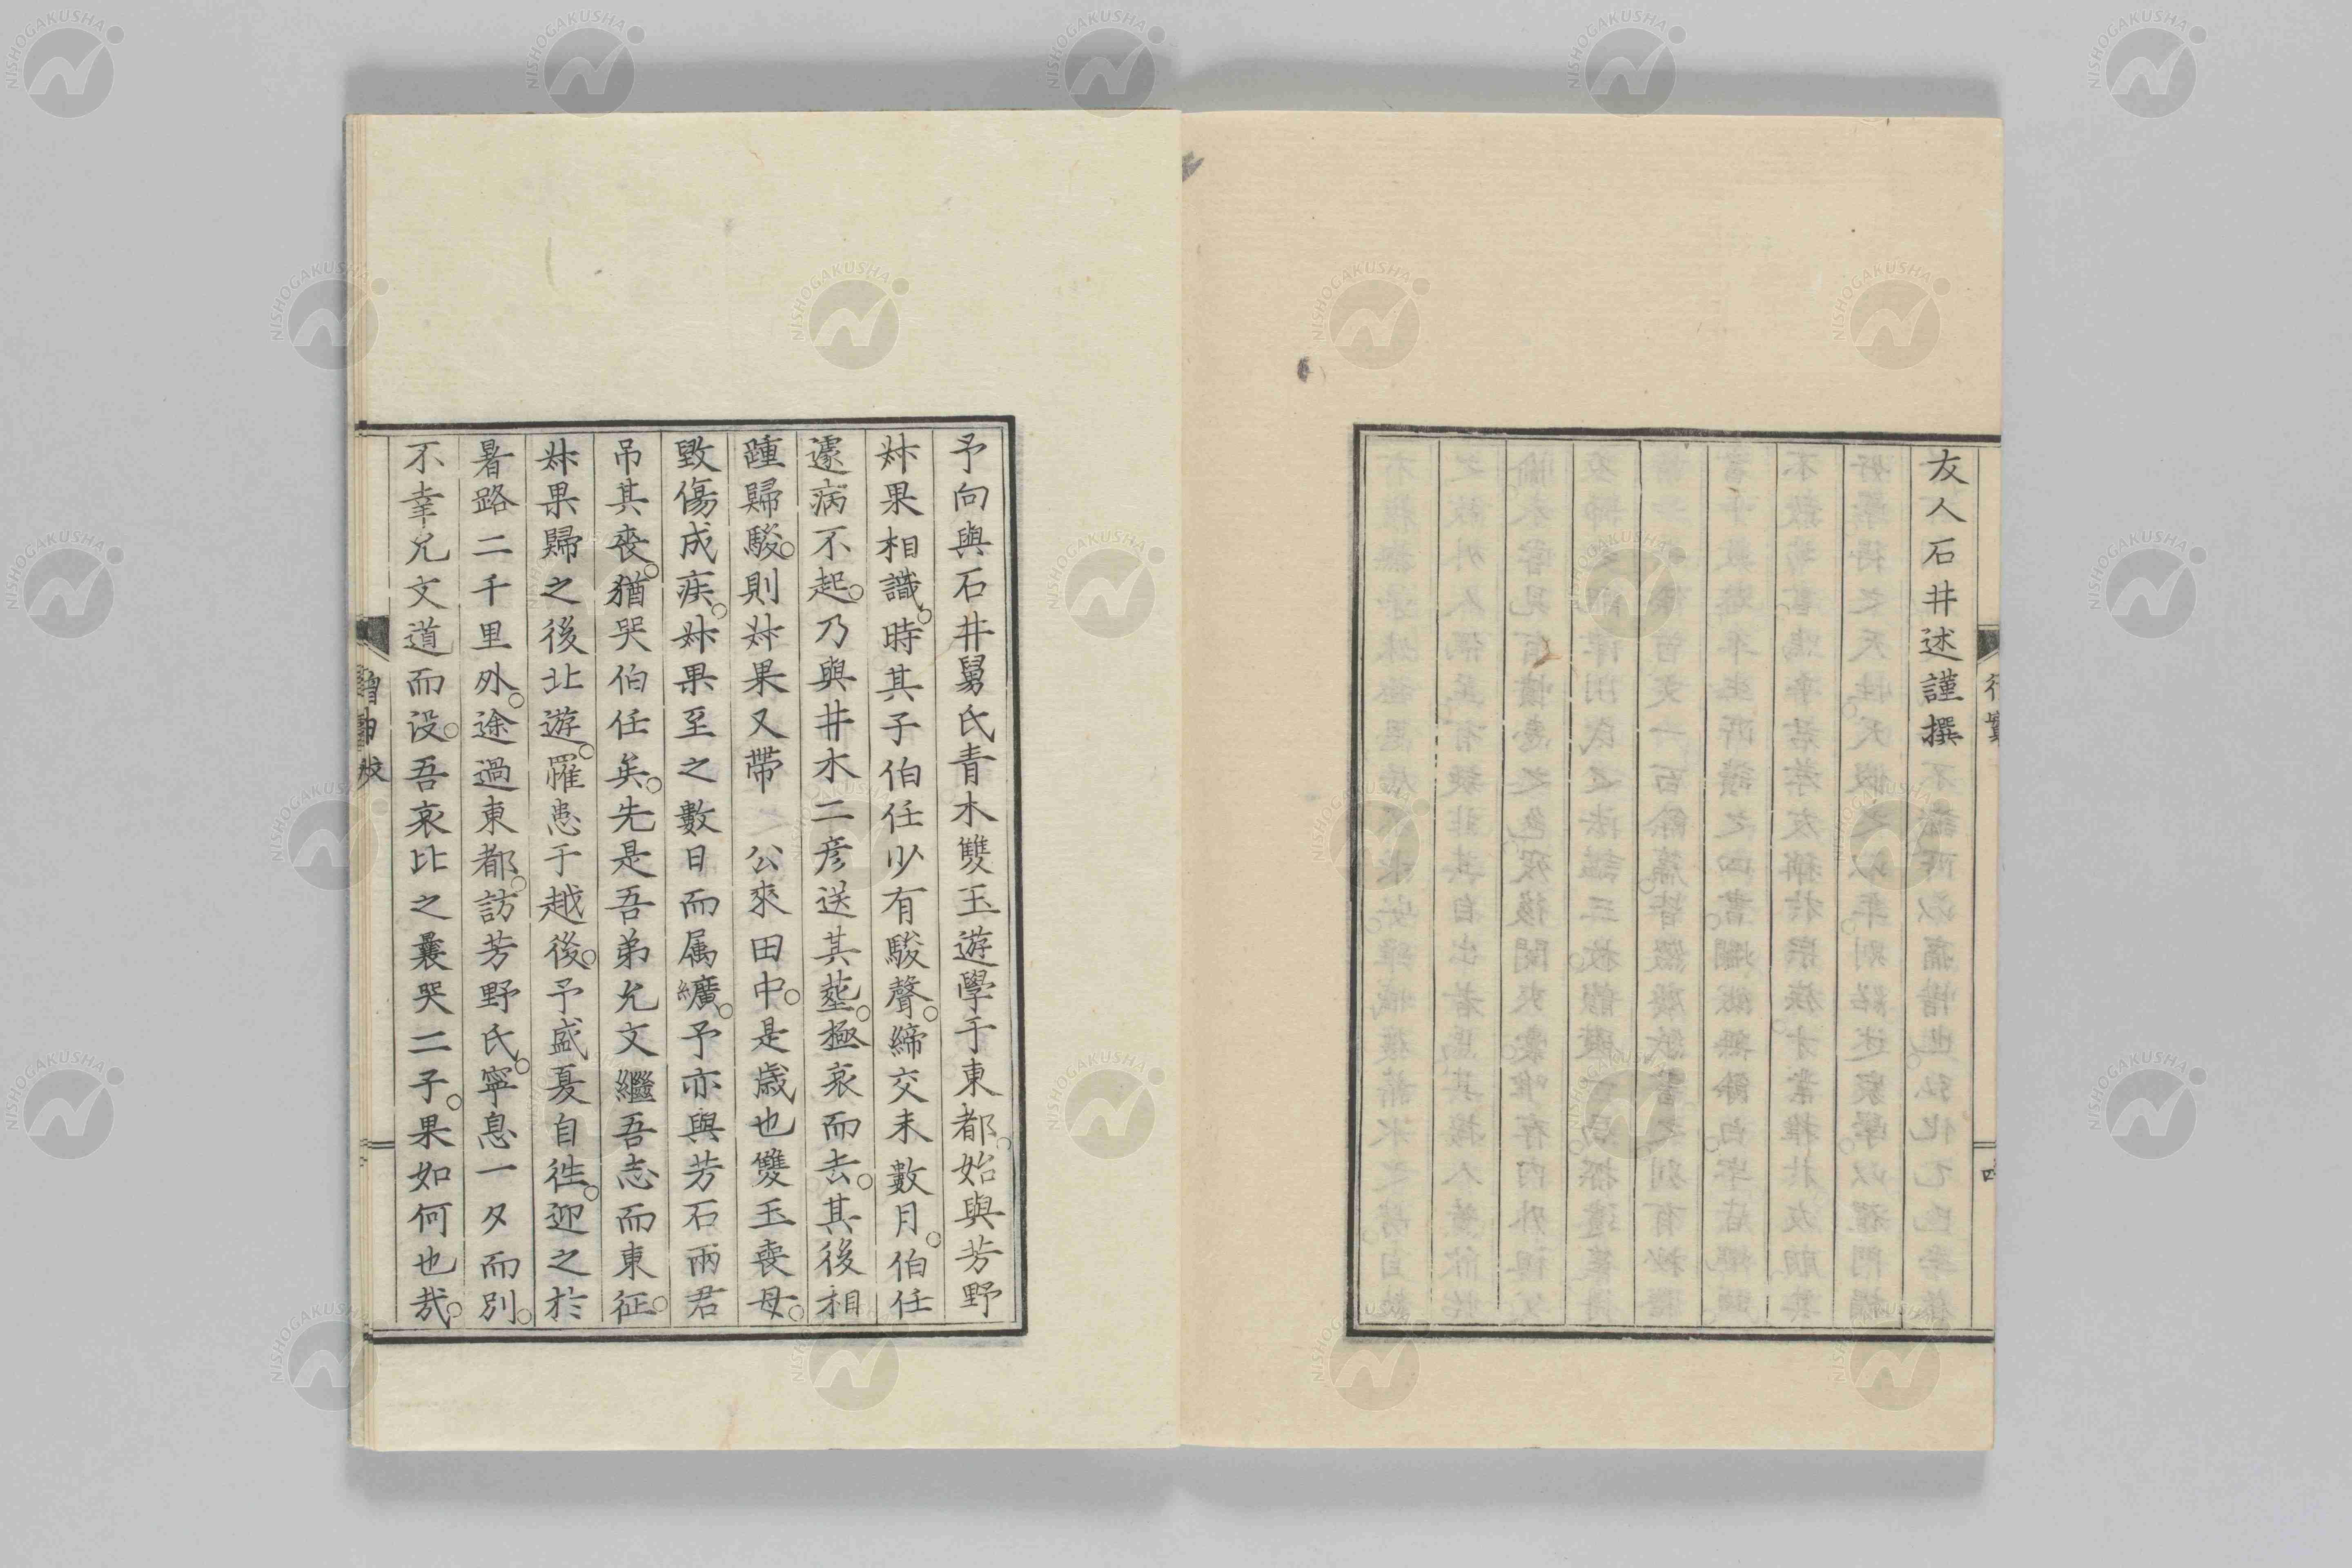 友人石井述謹撰
予向與石井舅氏青木雙玉遊學于東都。始與芳野
叔果相識。時其子伯任少有駿聲。締交未數月。伯任
遽病不起。乃與井木二彦送其葬。極哀而去。其後相
踵歸駿。則叔果又帶 公來田中。是歳也雙玉喪母。
毀傷成疾。叔果至之數日而属纊。予亦與芳石兩君
吊其喪。猶哭伯任矣。先是吾弟允文繼吾志而東征。
叔果歸之後北遊。罹患于越後。予盛夏自徃。迎之於
暑路二千里外。途過東都。訪芳野氏。寧息一夕而別。
不幸允文道而没。吾哀比之曩哭二子。果如何也哉。
NISHOGAKUSHA